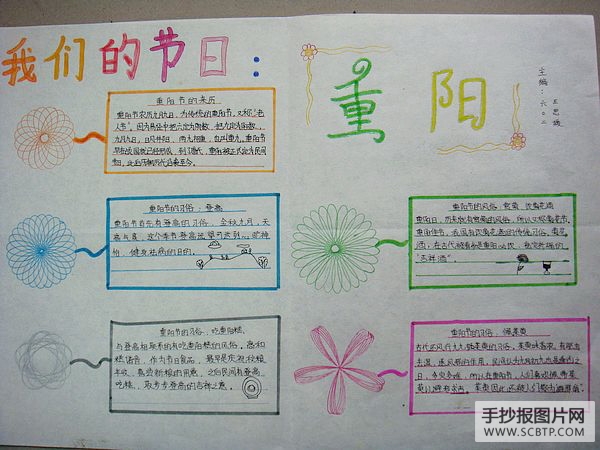 我们的节日：
重阳
主编：王思瑶
六〇二
重阳节的来历
重阳节农历九月九日，为传统的重阳节，又称"老
人节"。因为易经中把六定为阴数，把九定为阳数，
九月九日，日月并阳，两九相重，也叫重九。重阳节
早在战国就已经形成，到了唐代，重阳被正式定为民间
节日，此后历朝历代沿袭至今。
重阳节的习俗：登高
重阳节首先有登高的习俗，金秋九月，天
高气爽，这个季节登高远望可达到心旷神
怡，健身祛病的目的。
重阳节的习俗：吃重阳糕
与登高相联系的有吃重阳糕的风俗。高和
糕谐音，作为节日食品，最早是庆祝秋粮
丰收，喜尝新粮的用意，之后民间有登高
吃糕，取步步登高的吉祥之意。
重阳节的风俗：赏菊 饮菊花酒
重阳日，历来就有赏菊的风俗，所以又称菊花节。
重阳佳节，我国有饮菊花酒的传统习俗，菊花
酒，在古代被看作是重阳必饮、祛灾祈福的
"吉祥酒"。
重阳节的习俗：佩茱萸
古代还风行九九插茱萸的习俗。茱萸味香浓，有驱虫
去湿、逐风邪的作用，民间认为九月初九也是逢凶之
日，多灾多难，所以在重阳节，人们喜欢佩带茱
萸以辟邪求吉。茱萸因此还被人们称为"辟邪翁"。
手抄报图片网
WWW.SCBTP.COM